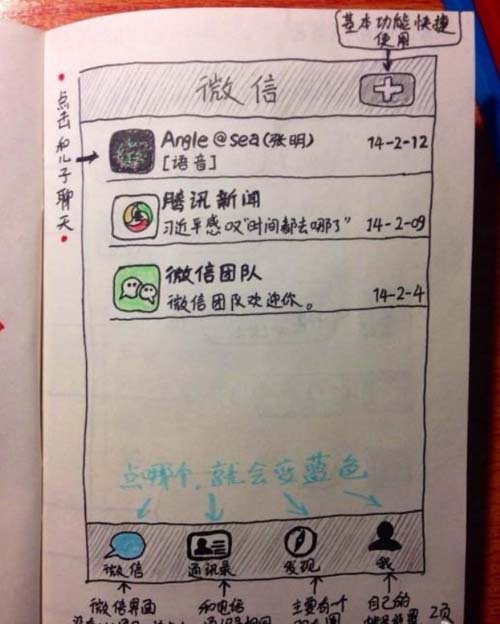 基本功能快捷
使用
微信
点击和儿子聊天
Angle@sea(张明) 14-2-12
[语音]
腾讯新闻
习近平感叹"时间都去哪了" 14-2-09
微信团队
微信团队欢迎你。 14-2-4
点哪个,就会变蓝色
微信 通讯录 发现 我
微信界面 和电信 主要有一个 自己的
2页